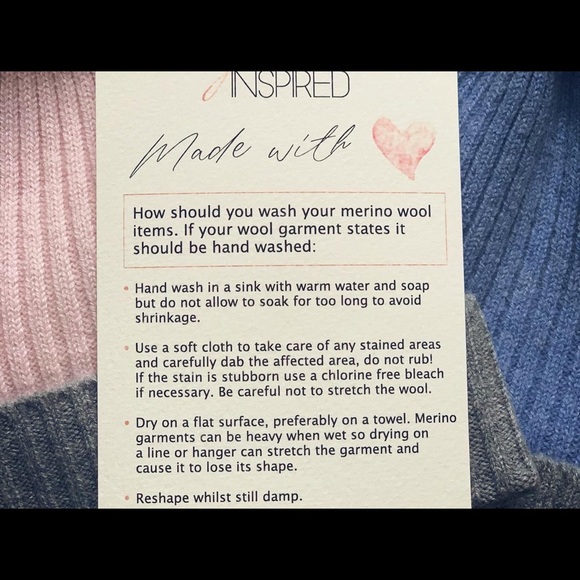 INSPIRED
Made with
How should you wash your merino wool
items. If your wool garment states it
should be hand washed:
• Hand wash in a sink with warm water and soap
but do not allow to soak for too long to avoid
shrinkage.
• Use a soft cloth to take care of any stained areas
and carefully dab the affected area, do not rub!
If the stain is stubborn use a chlorine free bleach
if necessary. Be careful not to stretch the wool.
• Dry on a flat surface, preferably on a towel. Merino
garments can be heavy when wet so drying on
a line or hanger can stretch the garment and
cause it to lose its shape.
• Reshape whilst still damp.